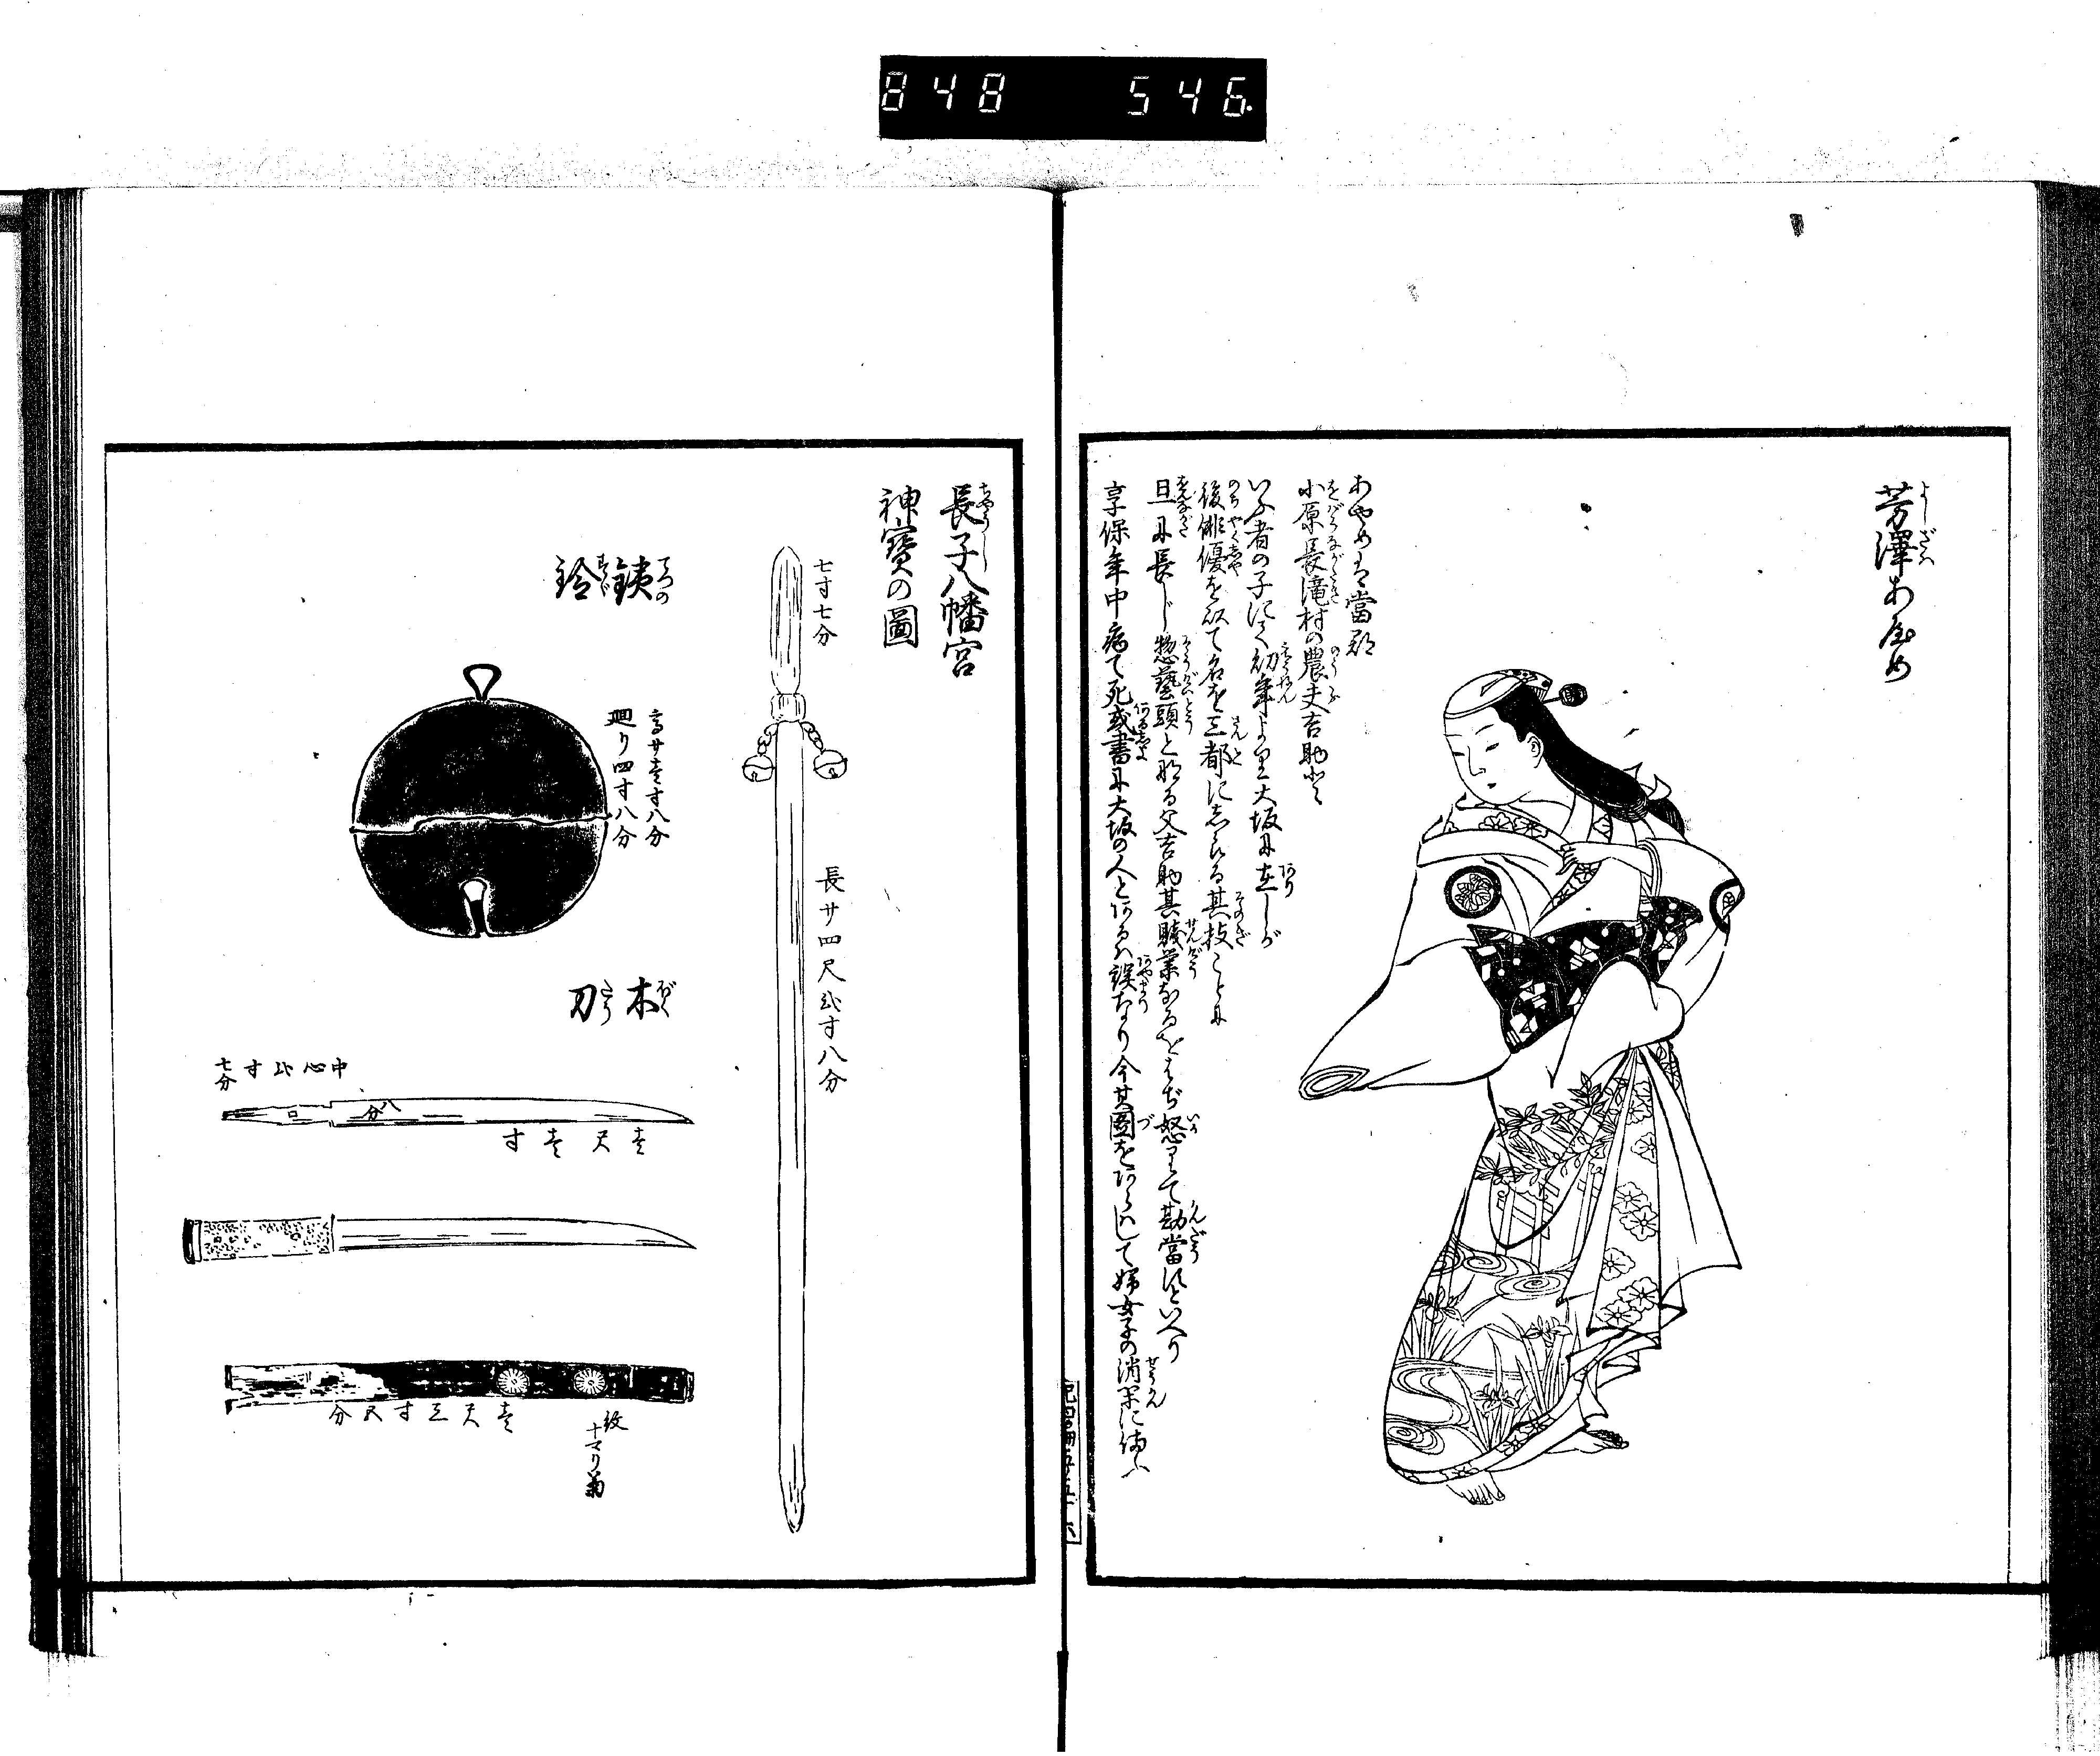 848 546
芳澤あやめ
あやめは當郡
小原長滝村の農夫吉助と
いふ者の子にて幼年より大坂に在しが
後俳優を以て名を三都にしらる其技ことに
旦に長じ惣藝頭と称る父吉助其賤業なるをはぢ怒りて勘當すといへり
享保年中病て死或書に大坂の人とあるハ誤なり今其圖をあらハして婦女子の消閑に備ふ
長子八幡宮
神寶の圖
七寸七分
長サ四尺弐寸八分
銕鈴
高サ壱寸八分
廻り四寸八分
木刀
中心比寸七分
八分
壱尺壱寸
壱尺三寸五分
紋
十マリ菊